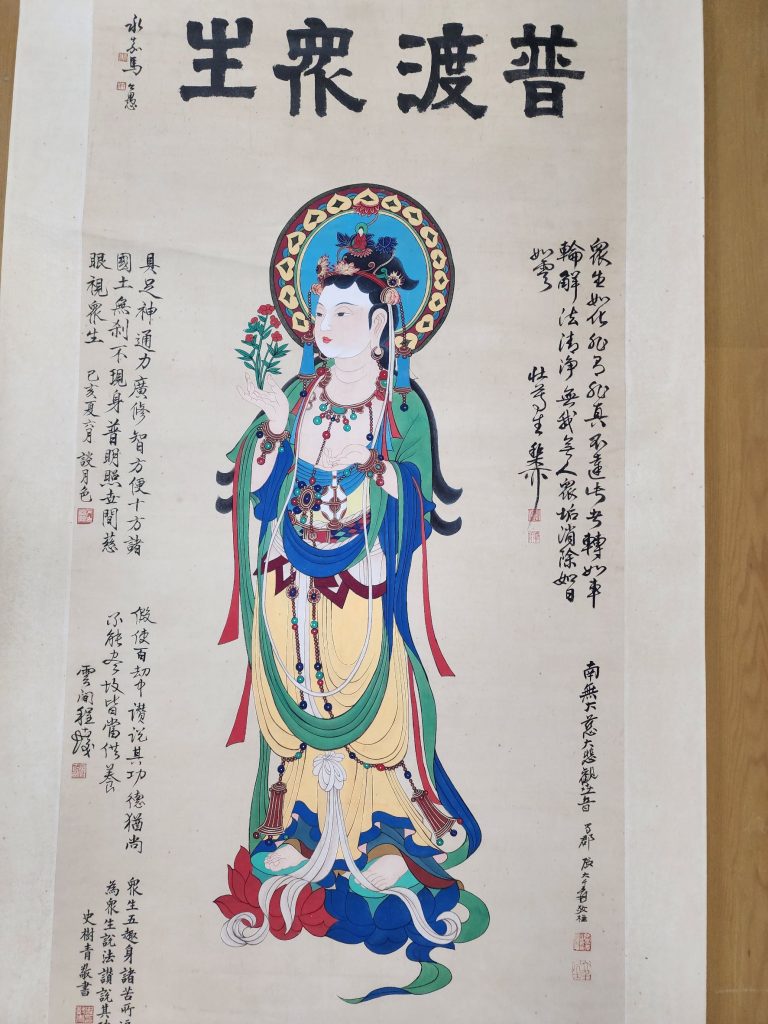 普渡衆生
永嘉馬公愚
衆生如化非有非真不達此步轉如車
輪解法清净無我無人衆垢消除如日
如雲
壯
南無大慈大悲觀世音
蜀郡
具足神通力廣修智方便十方諸
國土無刹不現身普明照世間慈
眼視衆生
己亥夏六月 談月色
假使百劫中讚説其功德猶尚
不能尽故皆當供養
雲間程
衆生五趣身諸苦所
為衆生説法讃説其
史樹青敬書